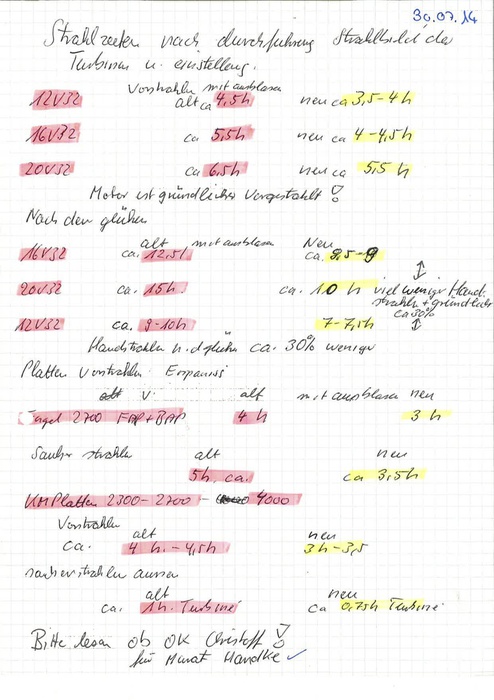 30.07.14
Strahlzeiten nach durchführung Strahlbild der
Turbinen u. einstellung.
Vorstrahlen mit ausblasen
12V32 alt ca 4,5h neu ca 3,5-4h
16V32 ca 5,5h neu ca 4-4,5h
20V32 ca 6,5h neu ca 5,5 h
Motor ist gründlicher Vorgestrahlt !
Nach dem glühen
alt mit ausblasen Neu
16V32 ca. 12,5h ca. 8,5-9
20V32 ca. 15h ca. 10 h viel weniger Hand.
strahlen + gründlicher
ca 30%
12V32 ca. 9-10h 7-7,5h
Handstrahlen n.d. glühen ca. 30% weniger
Platten Vorstrahlen
alt mit ausblasen neu
2700 FAP+BAP 4 h 3 h
Sauber strahlen alt neu
5h. ca. ca 3,5h
KMPlatten 2300-2700 - 4000
Vorstrahlen
alt neu
ca. 4 h. - 4,5h 3h-3,5
alt neu
ca. 1h. Turbine ca 0,75h Turbine
Bitte lesen ob OK Christoff !
für Murat Handke ✓